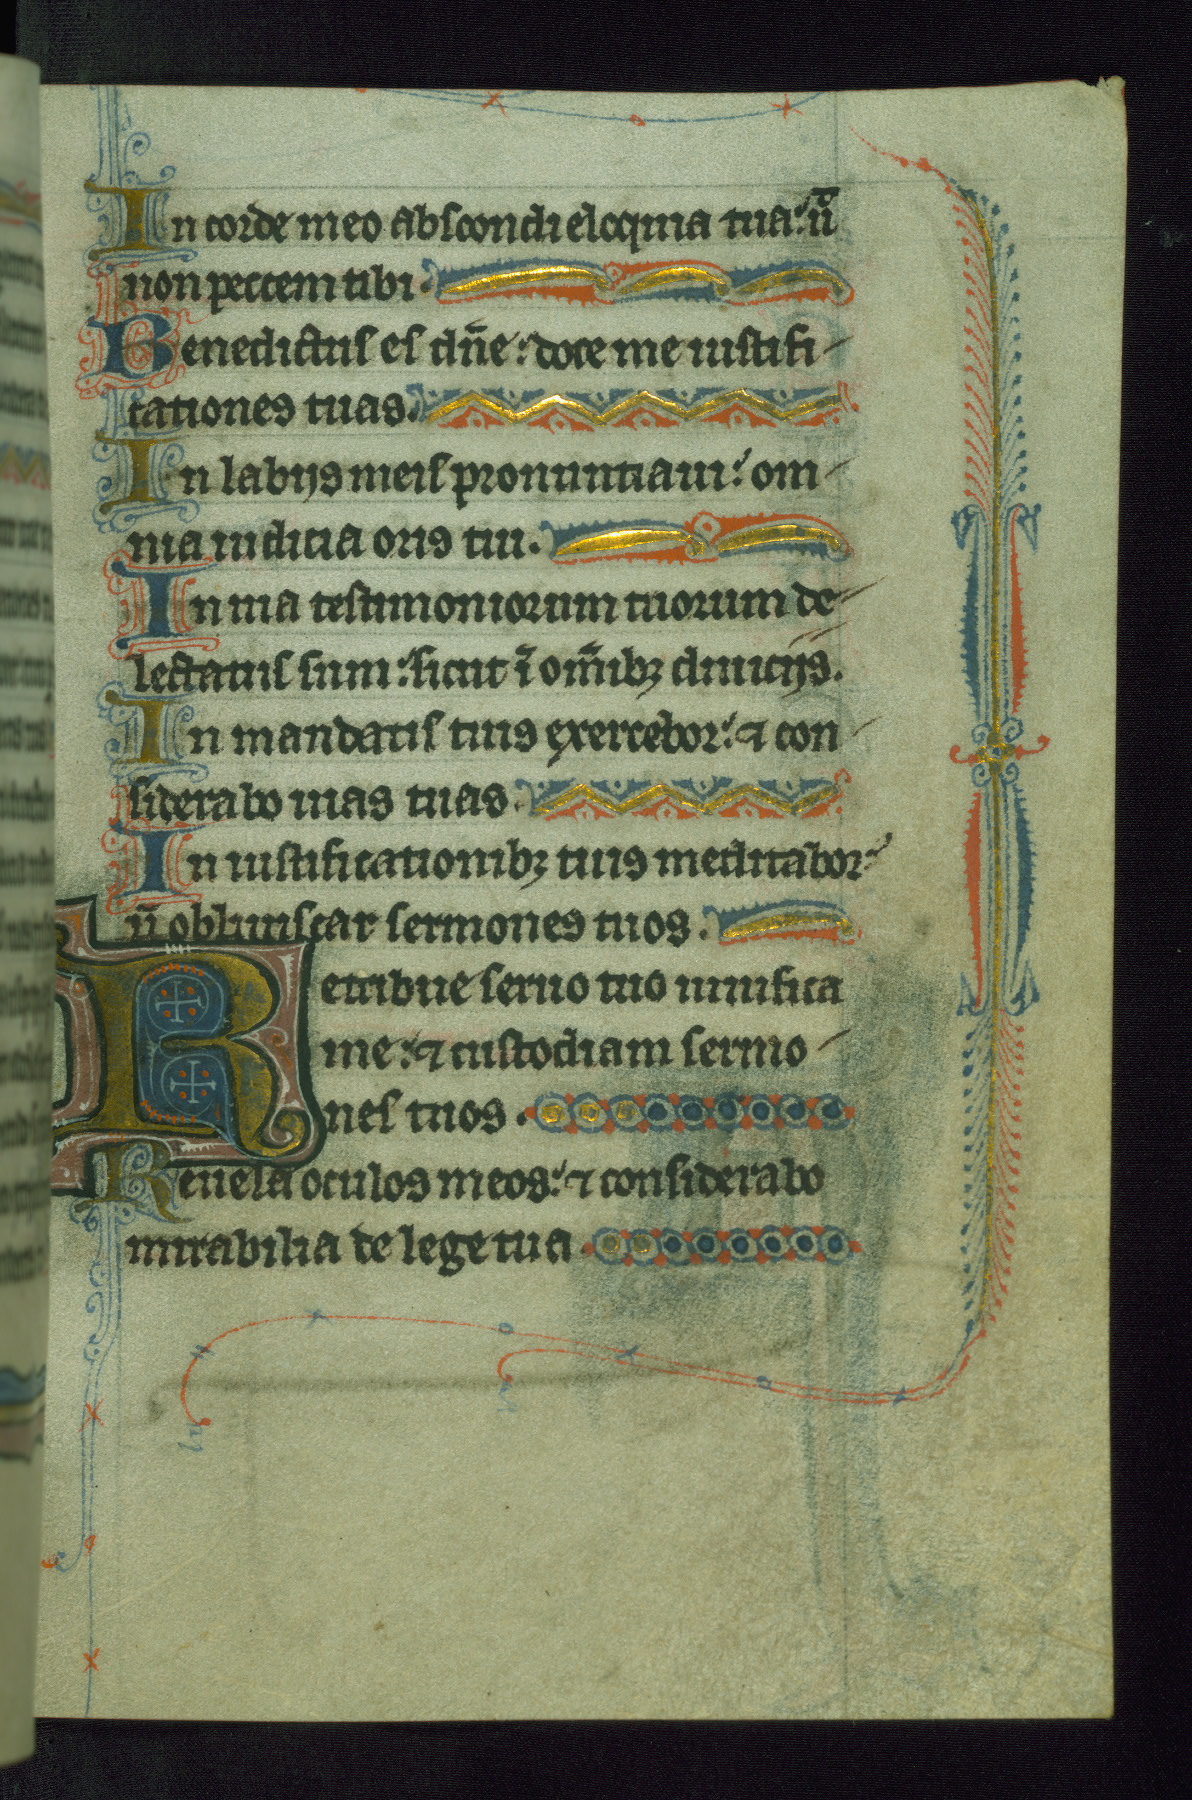 In corde meo abscondi eloquia tua: ū
non peccem tibi.
Benedictus es dn̄e: doce me iustifi
cationes tuas.
In labijs meis pronuntiaui: om
nia iudicia oris tui.
In uia testimoniorum tuorum de
lectatus sum: sicut ī om̄ibꝫ diuicijs.
In mandatis tuis exercebor: ⁊ con
siderabo uias tuas.
In iustificationibꝫ tuis meditabor:
n̄ obliuiscar sermones tuos.
Retribue seruo tuo uiuifica
me: ⁊ custodiam sermo
nes tuos.
Reuela oculos meos: ⁊ considerabo
mirabilia de lege tua.